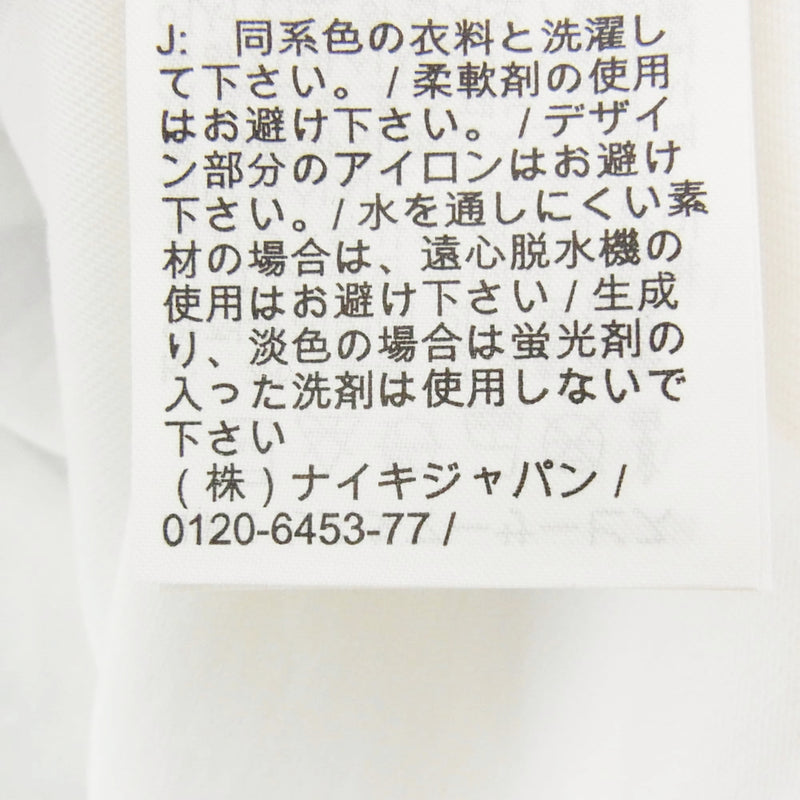 J: 同系色の衣料と洗濯し
て下さい。 / 柔軟剤の使用
はお避け下さい。 / デザイ
ン部分のアイロンはお避け
下さい。 / 水を通しにくい素
材の場合は、遠心脱水機の
使用はお避け下さい / 生成
り、淡色の場合は蛍光剤の
入った洗剤は使用しないで
下さい
(株) ナイキジャパン /
0120-6453-77 /